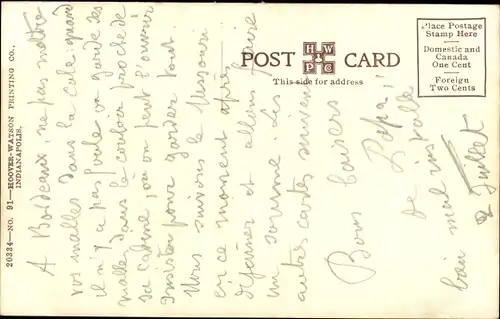 POST CARD
HWPC
This side for address
Place Postage
Stamp Here
Domestic and
Canada
One Cent
Foreign
Two Cents
20334—NO. 91—HOOVER-WATSON PRINTING CO.,
INDIANAPOLIS.
A Bordeaux, ne pas mettre
vos malles dans la cale. quand
il n'y a pas foule on garde les
malles dans le couloir proche de
sa cabine, où on peut l'ouvrir
Insister pour garder tout.
Nous suivons le Missouri
en ce moment après
déjeuner et allons faire
un somme. Les
autres cartes suivent
Bons baisers
Papa!
Je
mal installé
2 Juillet